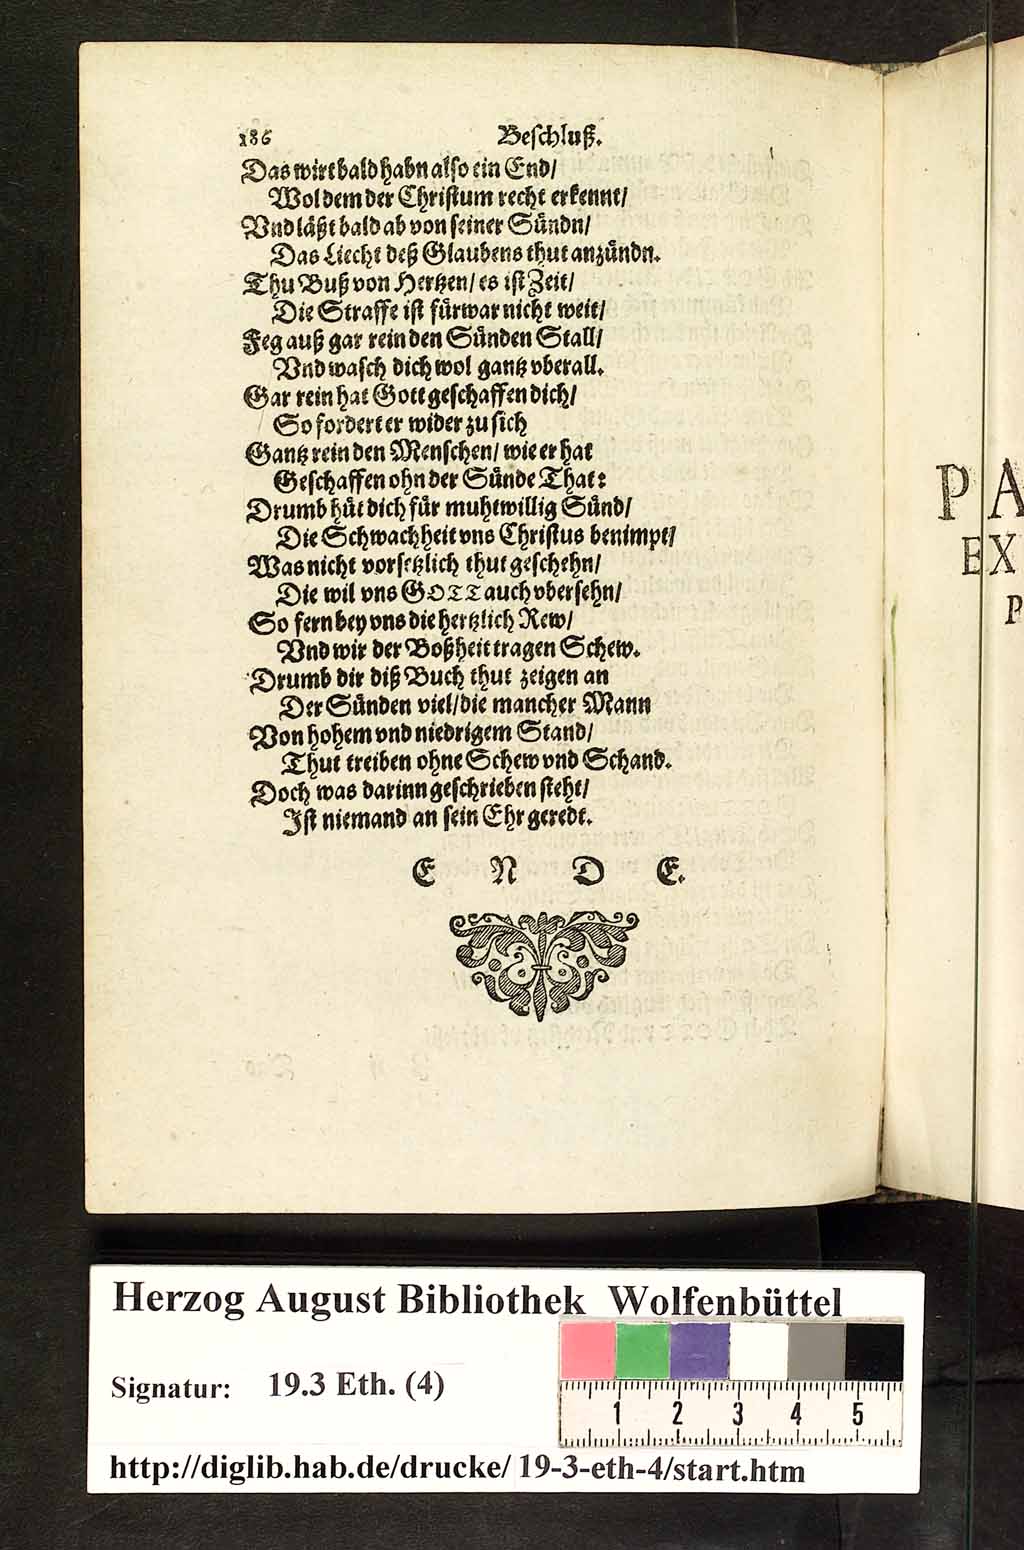 186 Beſchluß.
Das wirt bald habn alſo ein End/
Wol dem der Chriſtum recht erkennt/
Vnd läßt bald ab von ſeiner Sündn/
Das Liecht deß Glaubens thut anzündn.
Thu Buß von Hertzen/ es iſt Zeit/
Die Straffe iſt fürwar nicht weit/
Feg auß gar rein den Sünden Stall/
Vnd waſch dich wol gantz vberall.
Gar rein hat Gott geſchaffen dich/
So fordert er wider zu ſich
Gantz rein den Menſchen/ wie er hat
Geſchaffen ohn der Sünde That:
Drumb hüt dich für muhtwillig Sünd/
Die Schwachheit vns Chriſtus benimpt/
Was nicht vorſetzlich thut geſchehn/
Die wil vns GOTT auch vberſehn/
So fern bey vns die hertzlich Rew/
Vnd wir der Boßheit tragen Schew.
Drumb dir diß Buch thut zeigen an
Der Sünden viel/ die mancher Mann
Von hohem vnd niedrigem Stand/
Thut treiben ohne Schew vnd Schand.
Doch was darinn geſchrieben ſteht/
Iſt niemand an ſein Ehr geredt.
E N D E.
PA
EX
P
Herzog August Bibliothek Wolfenbüttel
Signatur: 19.3 Eth. (4)
1 2 3 4 5
http://diglib.hab.de/drucke/ 19-3-eth-4/start.htm